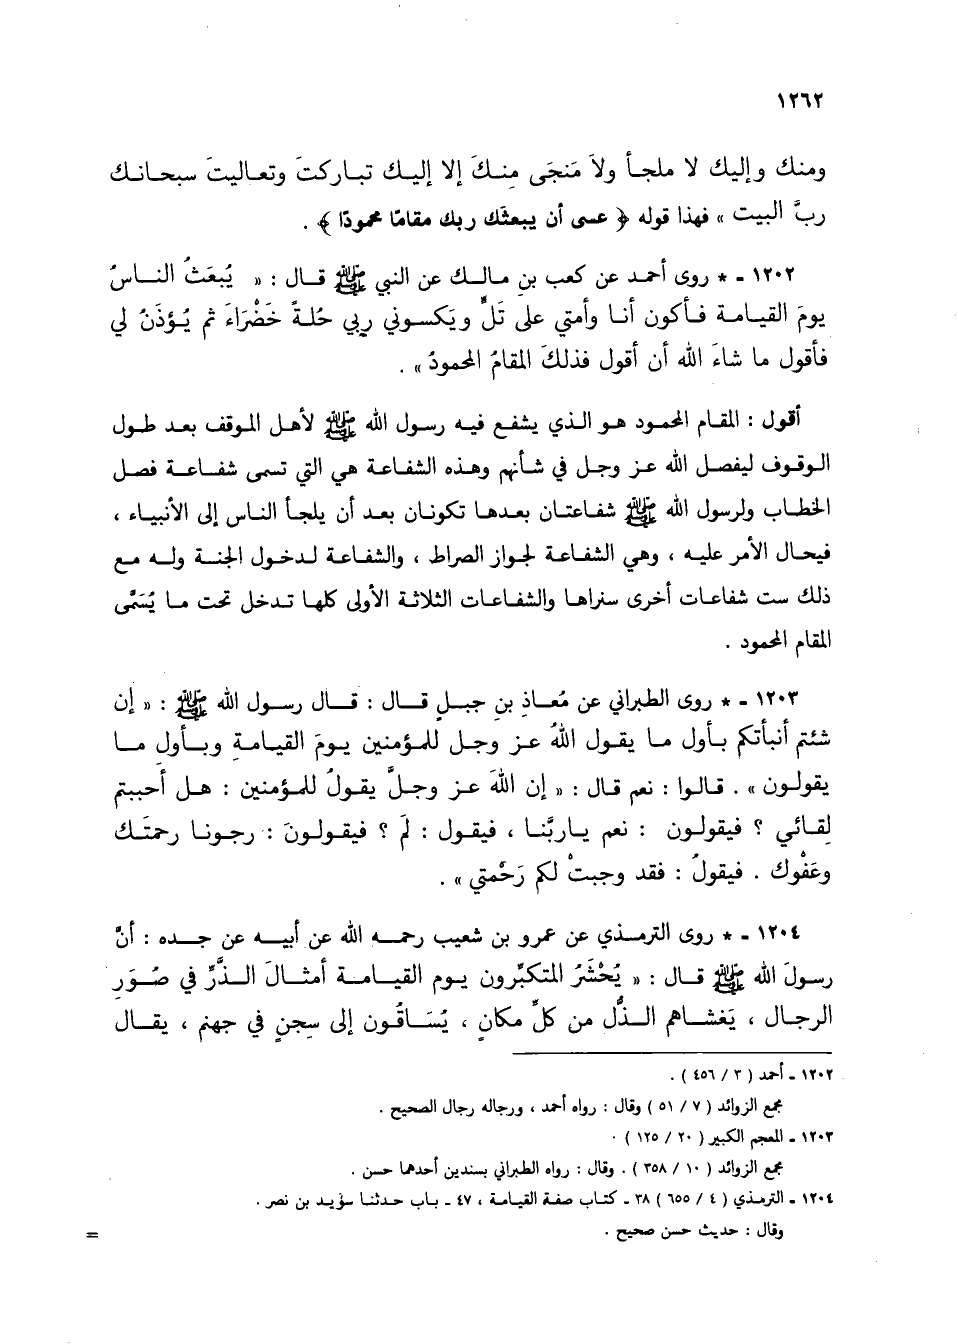 ١٢٦٢
ومنك وإليك لا ملجأ ولاَ مَنجَى مِنـكَ إلا إليـك تبـاركتَ وتعـاليتَ سبحـانـك
ربَّ البيت » فهذا قوله ﴿ عسى أن يبعثَك ربك مقامًا محمودًا ﴾ .
١٢٠٢ - * روى أحمـد عن كعب بن مـالـك عن النبي ﷺ قـال : « يُبعَثُ النـاسُ
يومَ القيـامـة فـأكون أنـا وأمتي على تَلٍّ ويَكسـوني ربي حُلـةً خَضْرَاءَ ثم يُـؤذَنُ لي
فأقول ما شاءَ الله أن أقول فذلـكَ المقامُ المحمودُ » .
أقول : المقـام المحمود هـو الـذي يشفـع فيـه رسـول الله ﷺ لأهـل المـوقف بعـد طـول
الوقـوف ليفصـل الله عـز وجـل في شـأنهم وهـذه الشفـاعـة هي التي تسمى شفـاعـة فصل
الخطـاب ولرسول الله ﷺ شفـاعتـان بعـدهـا تكونـان بعـد أن يلجـأ النـاس إلى الأنبيـاء ،
فيحـال الأمر عليـه ، وهي الشفـاعـة لجواز الصراط ، والشفـاعـة لـدخـول الجنـة ولـه مـع
ذلك ست شفاعات أخرى سنراهـا والشفـاعـات الثلاثـة الأولى كلهـا تـدخـل تحت مـا يُسَمَّى
المقام المحمود .
١٢٠٣ - * روى الطبراني عن مُعـاذِ بنِ جبـلٍ قـال : قـال رسـول الله ﷺ : « إن
شئتم أنبأتكم بـأول مـا يقـول اللهُ عـز وجـل للمـؤمنين يـومَ القيـامـةِ وبـأول مـا
يقولـون » . قـالـوا : نعم قـال : « إن اللهَ عـز وجـلَّ يقـولُ للمـؤمنين : هـل أحببتم
لِقـائي ؟ فيقولـون : نعم يـاربَّنـا ، فيقـول : لمَ ؟ فيقـولـونَ : رجـونـا رحمتَـك
وعَفْوك . فيقولُ : فقد وجبتْ لكم رَحْمتي » .
١٢٠٤ - * روى الترمـذي عن عمرو بن شعيب رحمـه الله عن أبيـه عن جـده : أنَّ
رسولَ الله ﷺ قـال : « يُحْشَرُ المتكبِّرون يـوم القيـامـة أمثـالَ الـذَّرِّ في صُـوَرِ
الرجـال ، يَغشـاهم الـذُّل من كلِّ مكانٍ ، يُسَـاقُون إلى سِجنٍ في جهنم ، يقـال
١٢٠٢ - أحمد ( ٣ / ٤٥٦ ) .
مجمع الزوائد ( ٧ / ٥١ ) وقال : رواه أحمد ، ورجاله رجال الصحيح .
١٢٠٣ - المعجم الكبير ( ٢٠ / ١٢٥ ) .
مجمع الزوائد ( ١٠ / ٣٥٨ ) . وقال : رواه الطبراني بسندين أحدهما حسن .
١٢٠٤ - الترمذي ( ٤ / ٦٥٥ ) ٣٨ - كتاب صفة القيامة ، ٤٧ - باب حدثنا سويد بن نصر .
وقال : حديث حسن صحيح .
=